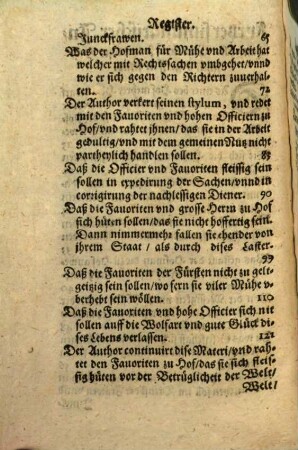 Register.
Junckfrawen. 65
Was der Hofman für Mühe vnd Arbeit hat
welcher mit Rechtssachen vmbgehet/vnnd
wie er sich gegen den Richtern zuuerhal-
ten. 72
Der Author verkert seinen stylum, vnd redet
mit den Fauoriten vnd hohen Officiern zu
Hof/vnd rahtet jhnen/das sie in der Arbeit
gedultig/vnd mit dem gemeinen Nutz nicht
partheylich handlen sollen. 83
Daß die Officier vnd Fauoriten fleissig sein
sollen in expedirung der Sachen/vnnd in
corrigirung der nachlessigen Diener. 90
Daß die Fauoriten vnd grosse Herrn zu Hof
sich hüten sollen/das sie nicht hoffertig sein.
Dann nimmermehr fallen sie ehender von
jhrem Staat / als durch dises Laster.
99
Daß die Fauoriten der Fürsten nicht zu gelt-
geitzig sein sollen/wo fern sie viler Mühe v-
berhebt sein wöllen. 110
Daß die Fauoriten vnd hohe Officier sich nit
sollen auff die Wolfart vnd gute Glück di-
ses Lebens verlassen. 121
Der Author continuirt dise Materi/vnd rah-
tet den Fauoriten zu Hof/das sie sich fleis-
sig hüten vor der Betrüglicheit der Welt/
Welt/